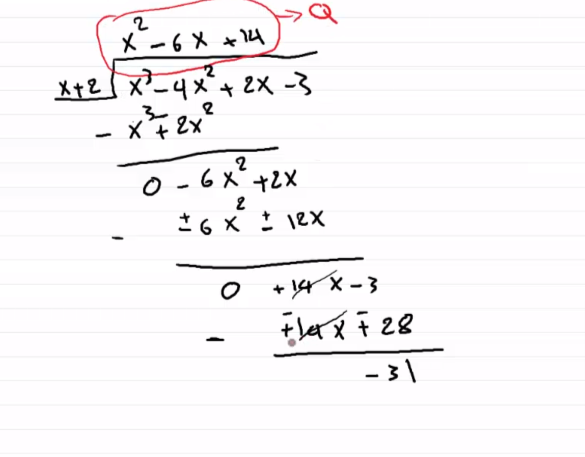 x² - 6x + 14 → Q
x+2 x³ - 4x² + 2x - 3
- x³ + 2x²
0 - 6x² + 2x
- ± 6x² ± 12x
0 + 14x - 3
- ∓ 14x ∓ 28
- 31